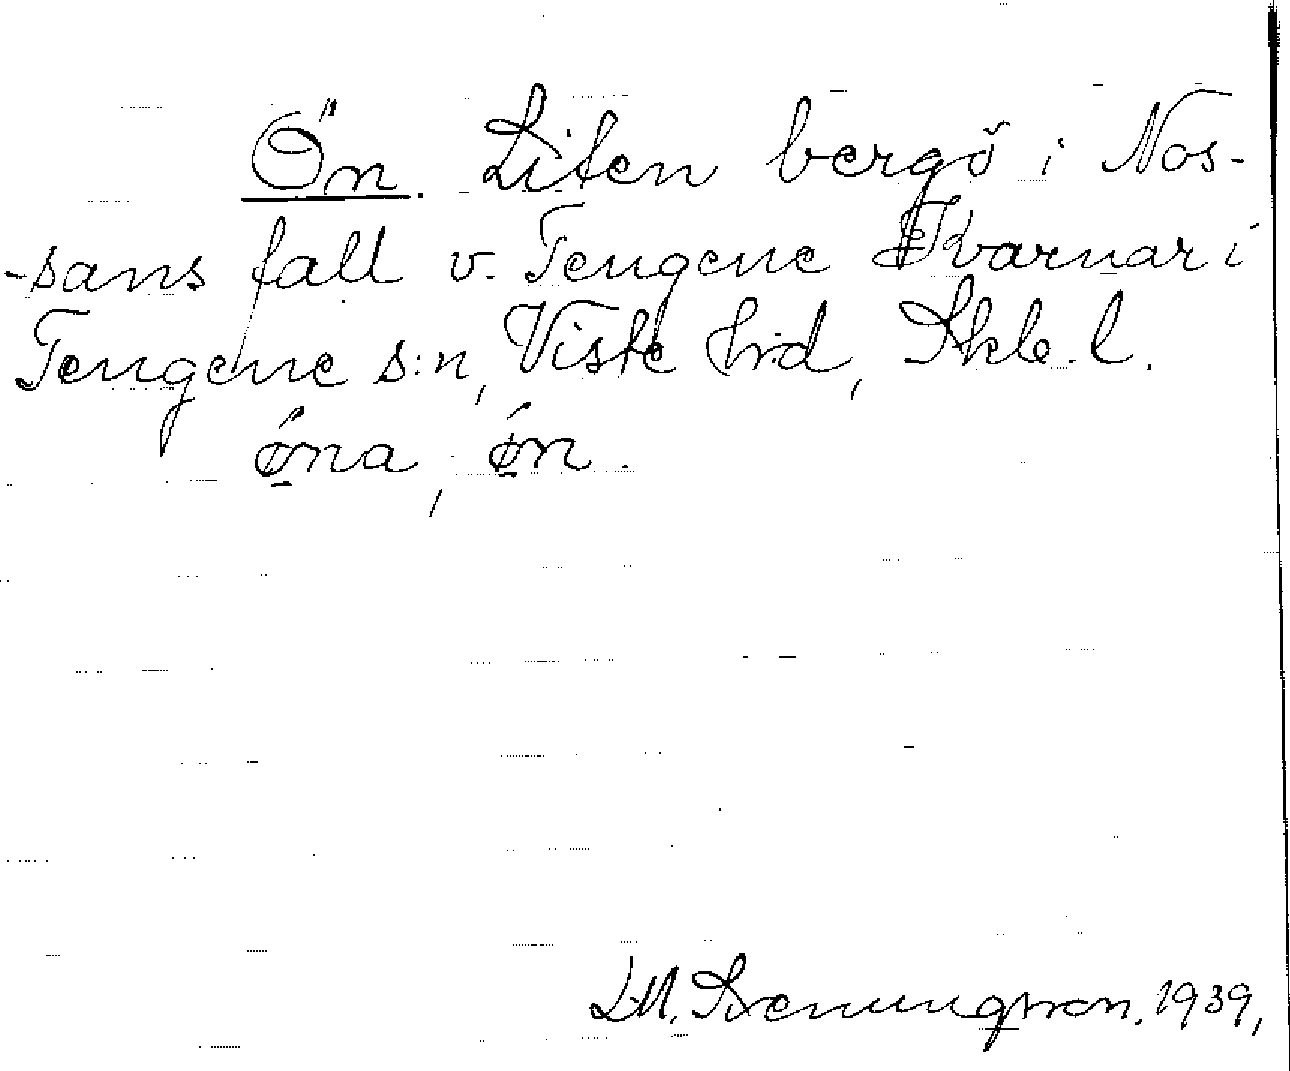 Ön. Liten bergö i Nos-
-sans fall v. Tengene Kvarnar i
Tengene s:n, Viste hrd, Skb. l.
øna, øn.
L.M. Svenungsson. 1939,